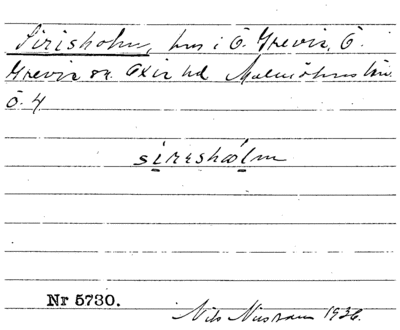 Sirisholm, hus i Ö. Grevie, Ö.
Grevie sn. Oxie hd Malmöhus län.
ö. 4
sireshålm
Nr 5730.
Nils Nilsson 1936.